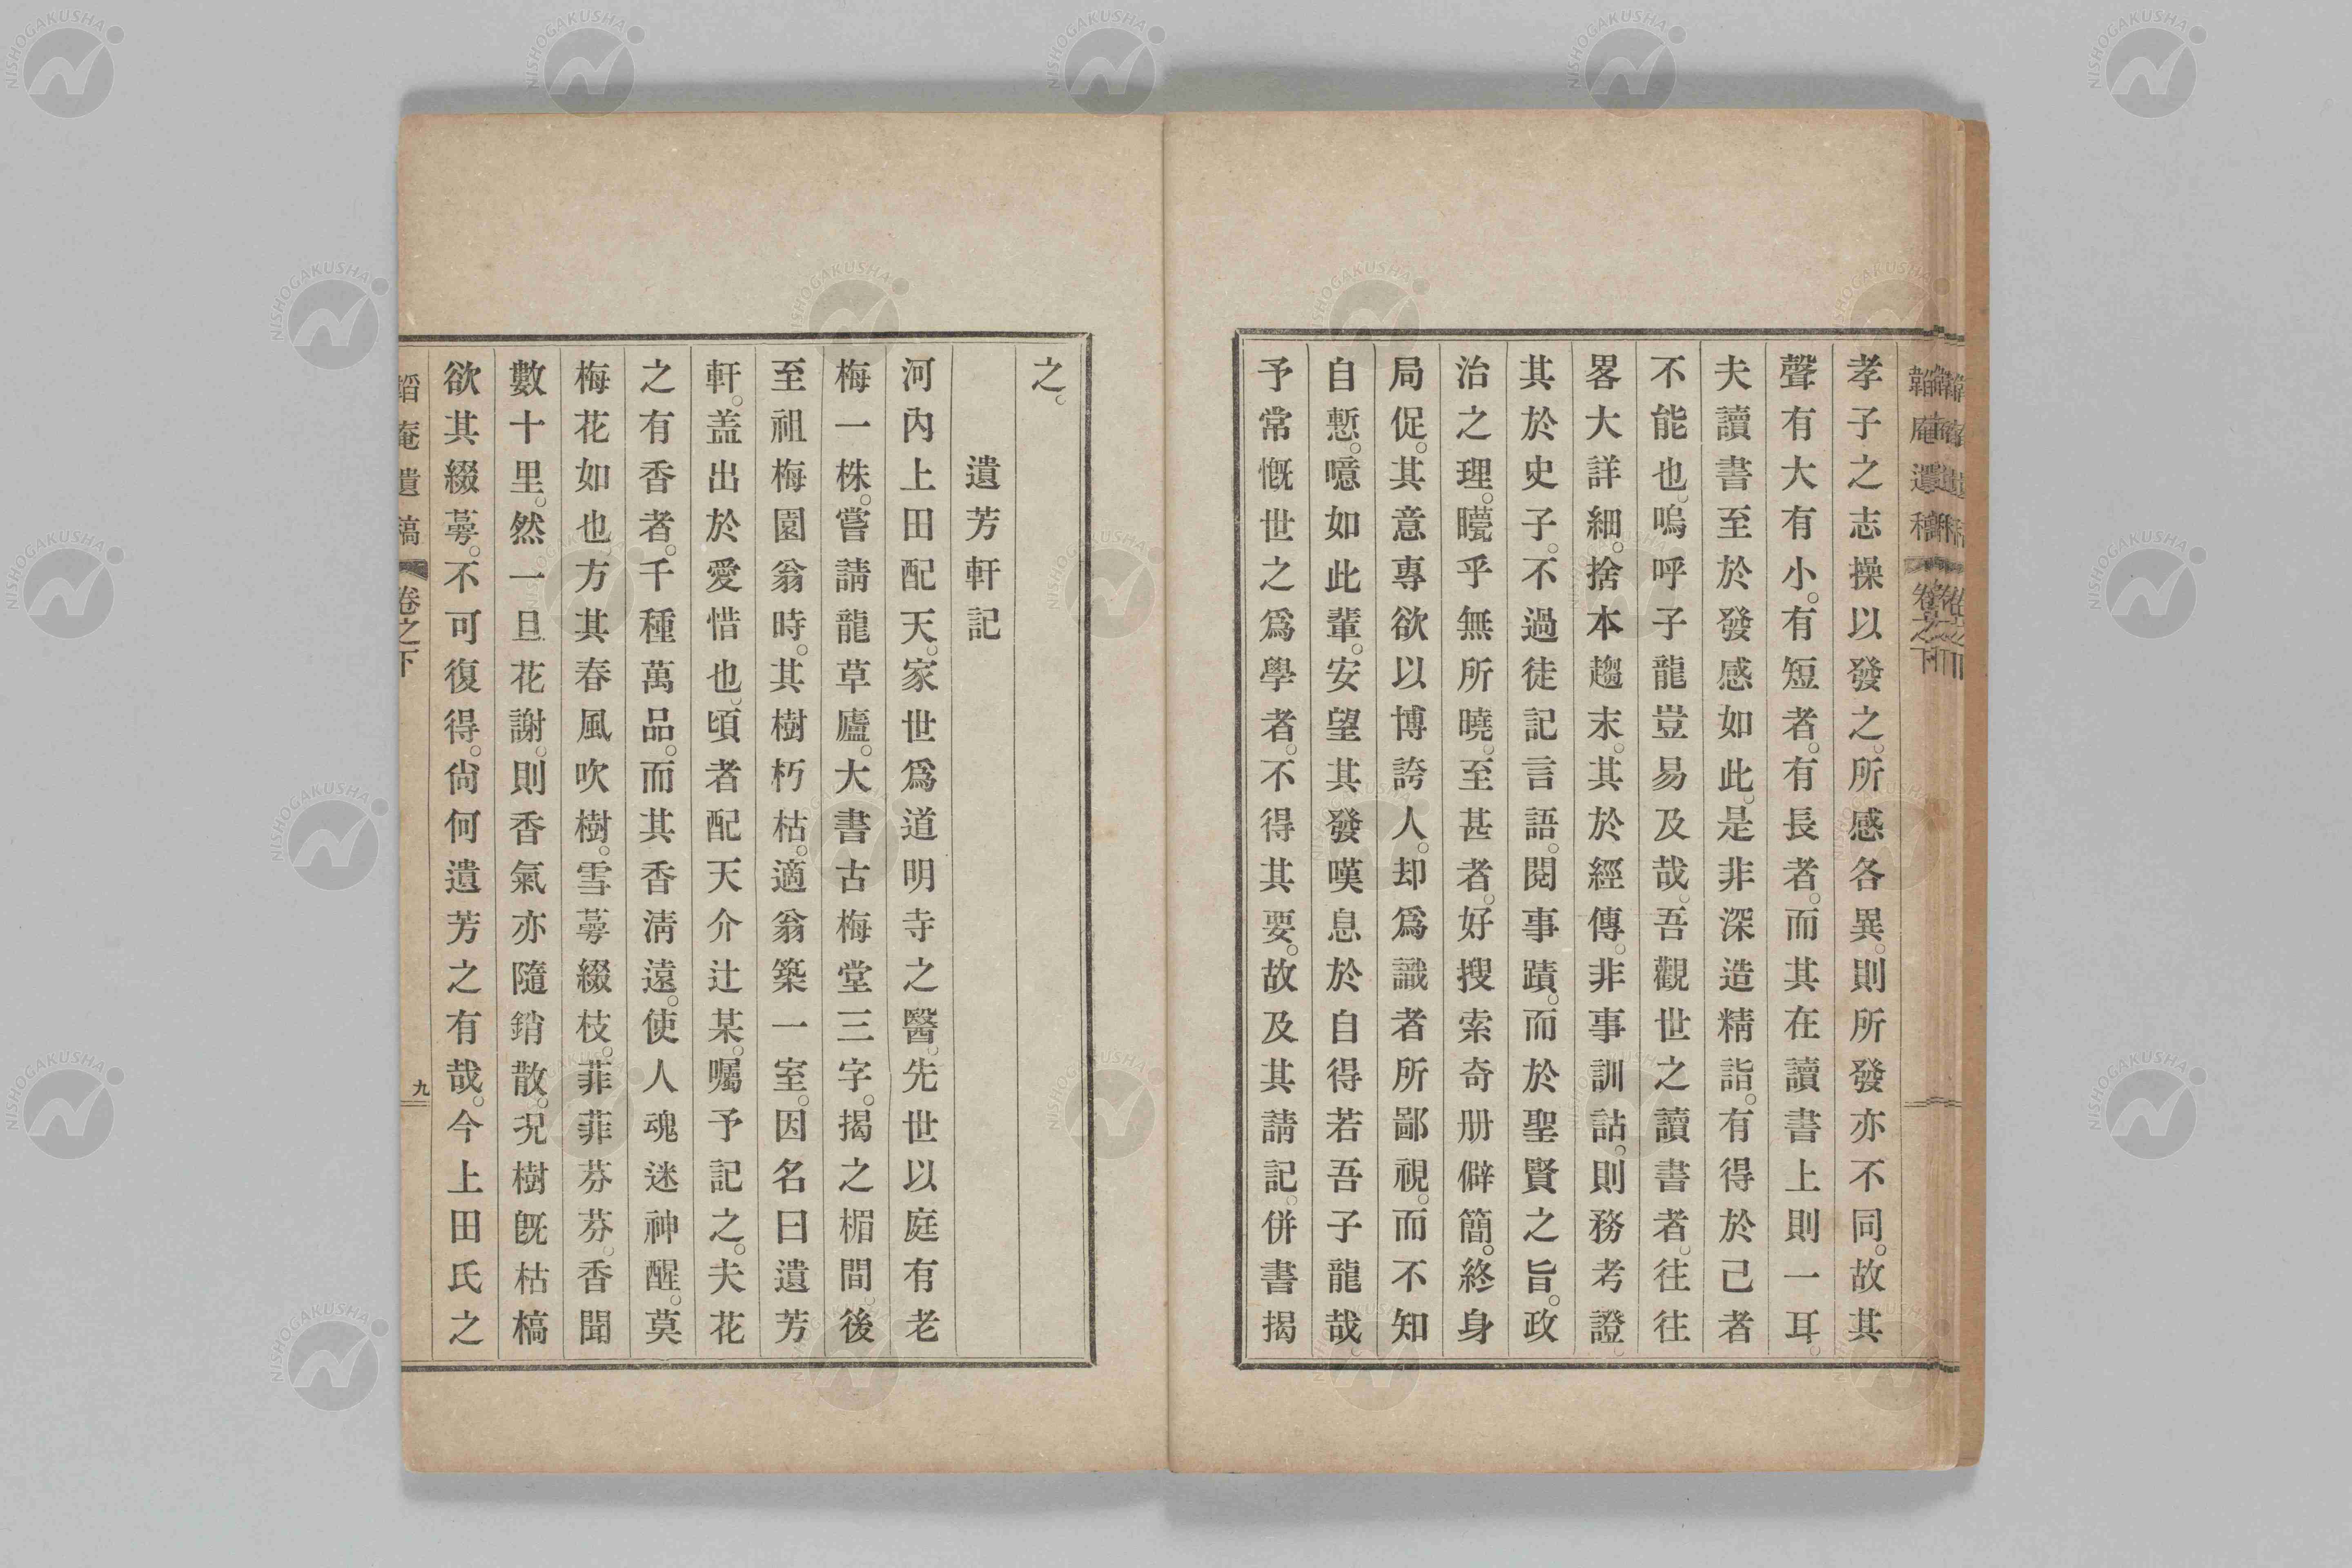 孝子之志操以發之。所感各異。則所發亦不同。故其
聲有大有小。有短者。有長者。而其在讀書上則一耳。
夫讀書至於發感如此。是非深造精詣。有得於己者
不能也。嗚呼子龍豈易及哉。吾觀世之讀書者。往往
畧大詳細。捨本趨末。其於經傳。非事訓詁。則務考證。
其於史子。不過徒記言語。閱事蹟。而於聖賢之旨。政
治之理。矒乎無所曉。至甚者。好搜索奇册僻簡。終身
局促。其意專欲以博誇人。却爲識者所鄙視。而不知
自慙。噫如此輩。安望其發嘆息於自得若吾子龍哉
予常慨世之爲學者。不得其要。故及其請記。併書揭
之。
遺芳軒記
河內上田配天。家世爲道明寺之醫。先世以庭有老
梅一株。嘗請龍草廬。大書古梅堂三字。揭之楣間。後
至祖梅園翁時。其樹朽枯。適翁築一室。因名曰遺芳
軒。盖出於愛惜也。頃者配天介辻某。囑予記之。夫花
之有香者。千種萬品。而其香淸遠。使人魂迷神醒。莫
梅花如也。方其春風吹樹。雪蕚綴枝。菲菲芬芬。香聞
數十里。然一旦花謝。則香氣亦隨銷散。況樹旣枯槁
欲其綴蕚。不可復得。尙何遺芳之有哉。今上田氏之
韜庵遺稿 卷之下 九
NISHOGAKUSHA